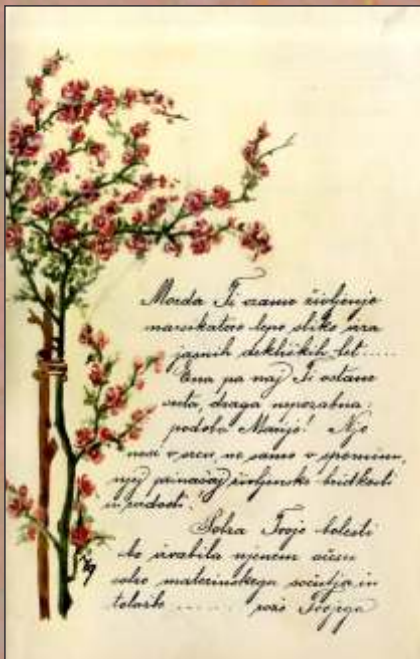 Morda Ti vzame življenje
marsikatero lepo sliko iz
jasnih dekliških let.....
Ena pa naj Ti ostane
sveta, draga nepozabna:
podoba Marije! Njo
nosi v srcu, ne samo v spominu,
njej prinašaj življenske bridkosti
in radosti.
Solza Tvoje bolesti
bo izvabila njenem očesu
solzo materinskega sočutja in
tolažbe ...... Tvojega